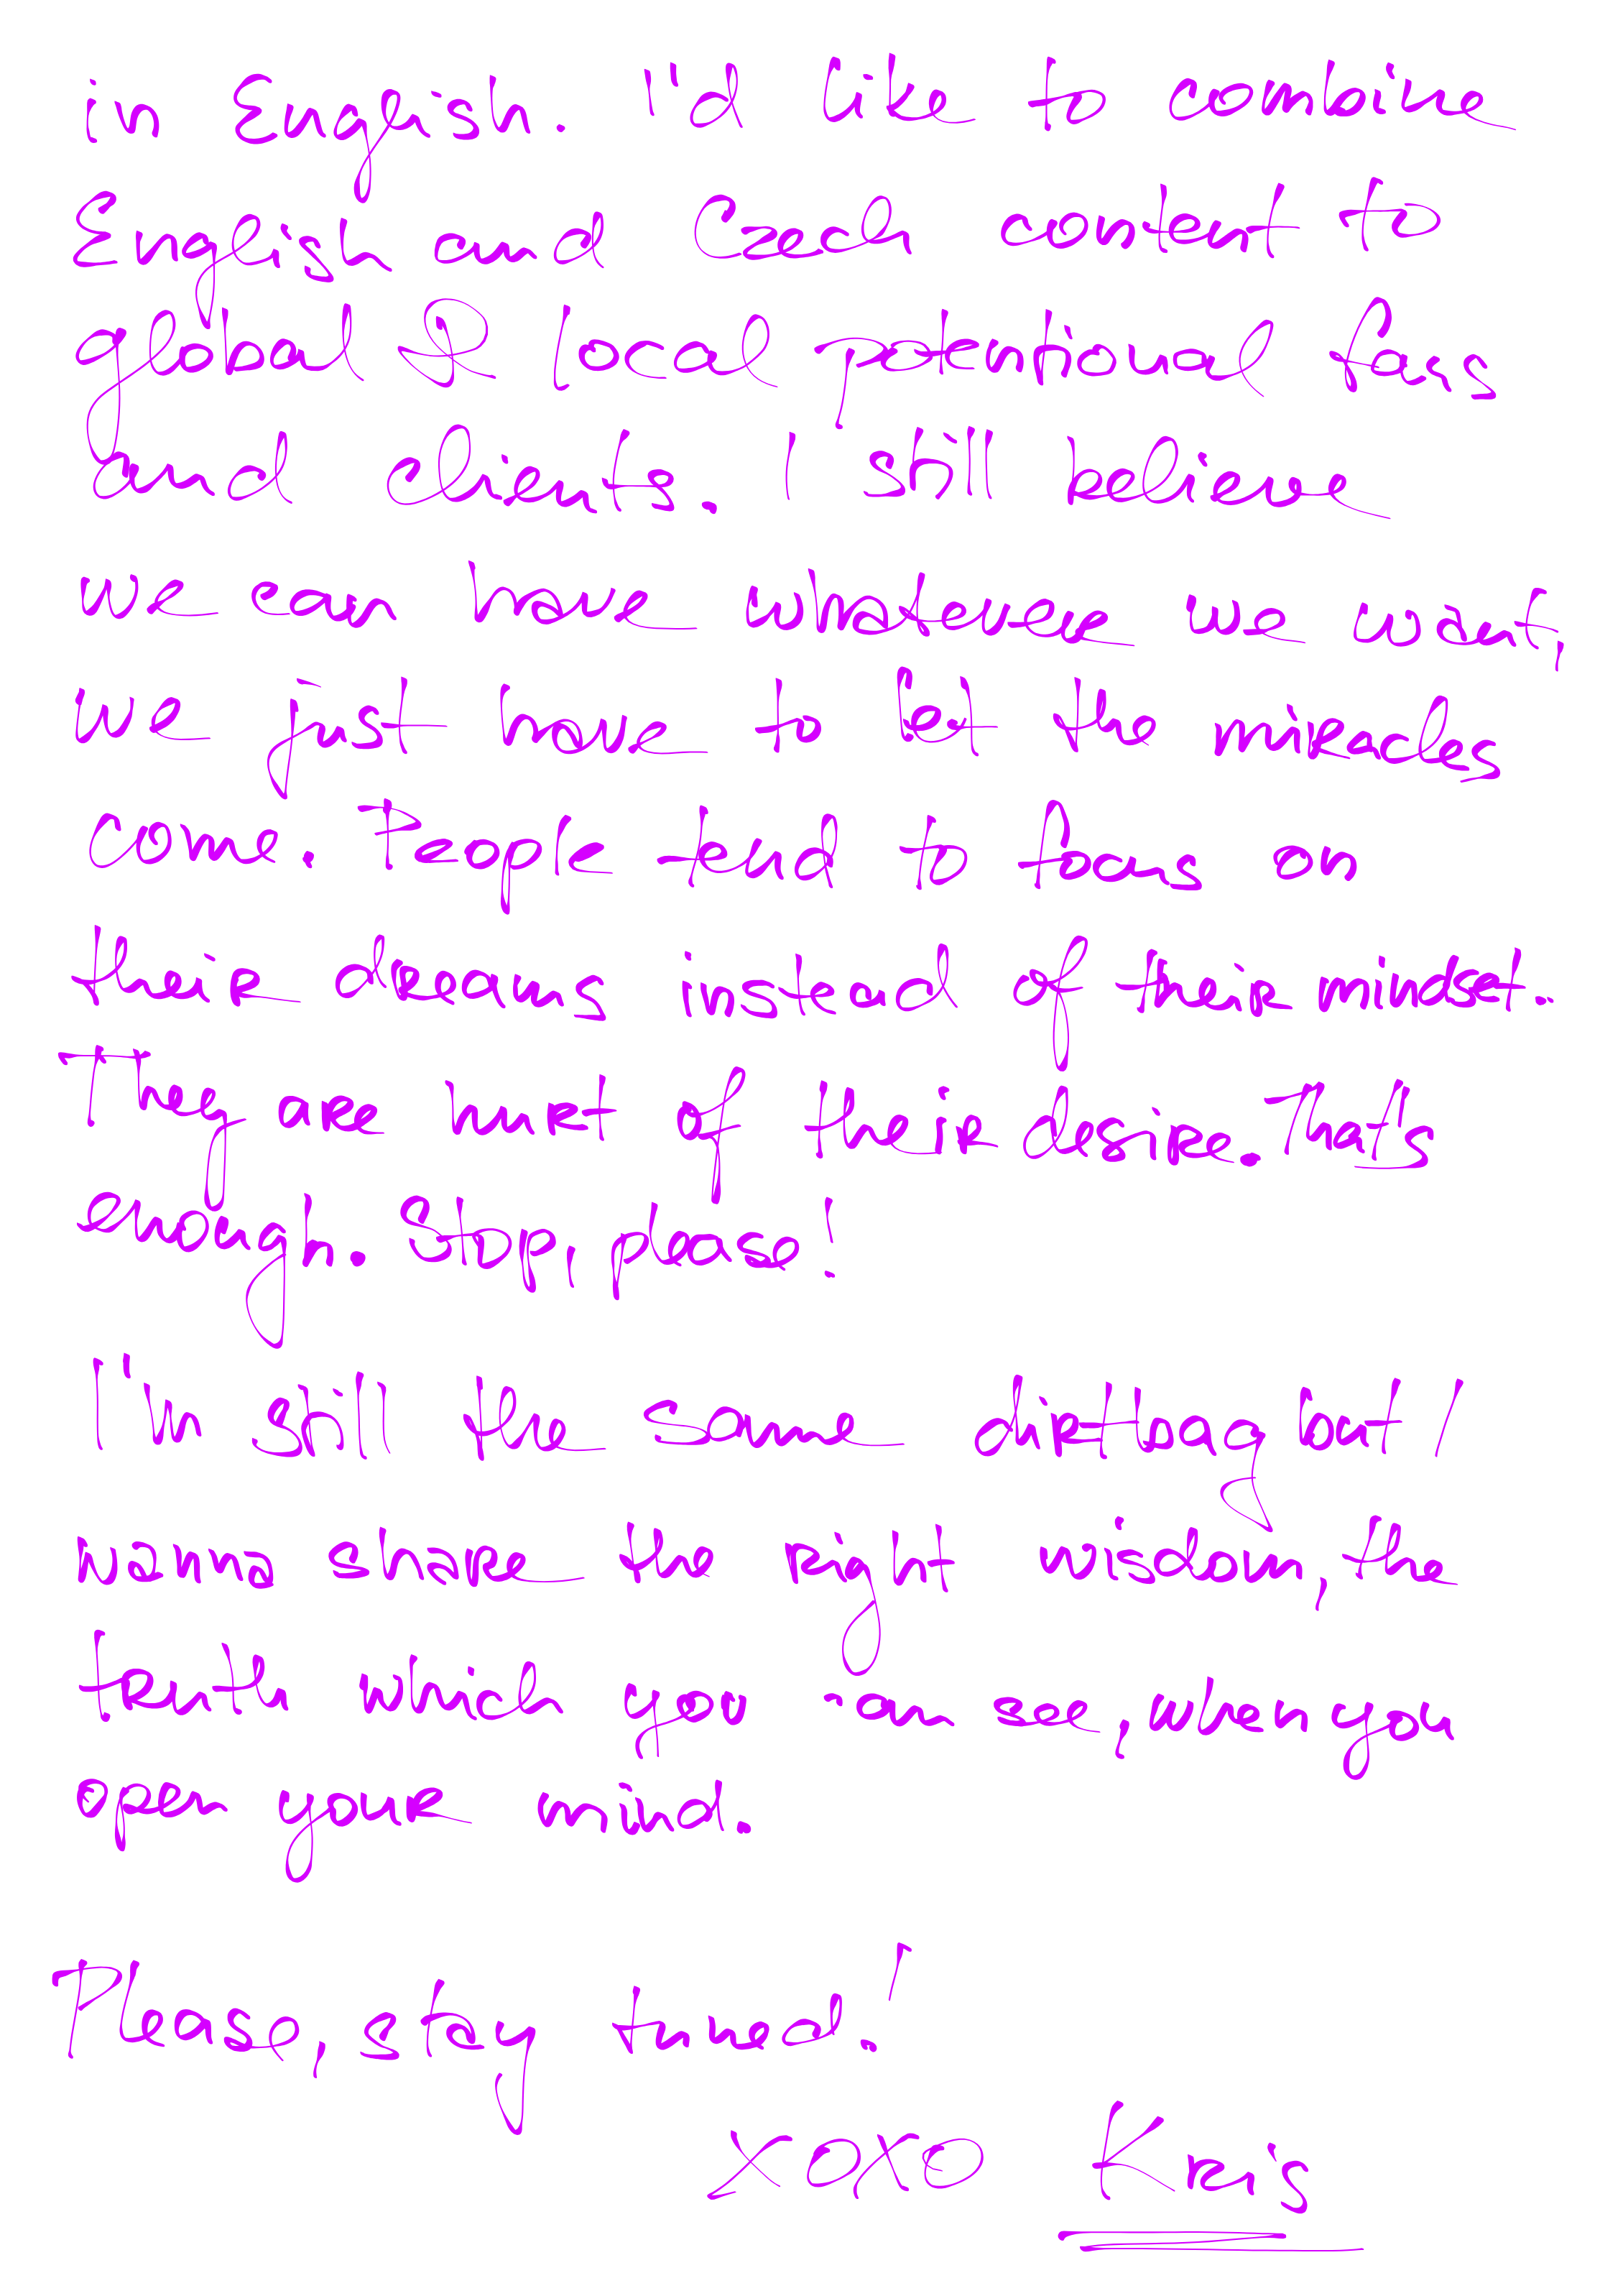 in English. I'd like to combine
English and Czech content to
global & local potential fans
and clients. I still believe
we can have whatever we want,
we just have to let the miracles
come. People tend to focus on
their dreams instead of their mindset.
They are hurt of their desire. That's
enough. Stop, please!
I'm still the same dirtbag but I
wanna share the right wisdom, the
truth which you can see, when you
open your mind.
Please, stay tuned!
XOXO Kris